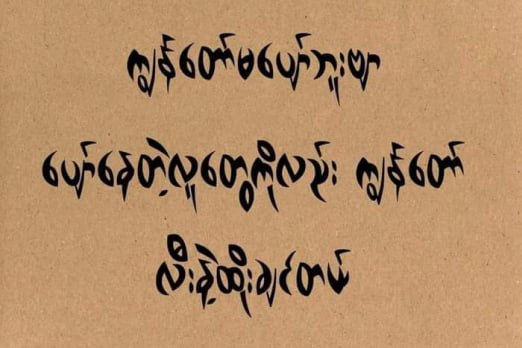 ကျွန်တော်မပျော်ဘူးဗျာ
ပျော်နေတဲ့လူတွေကိုလည်း ကျွန်တော်
လီးနဲ့ထိုးချင်တယ်